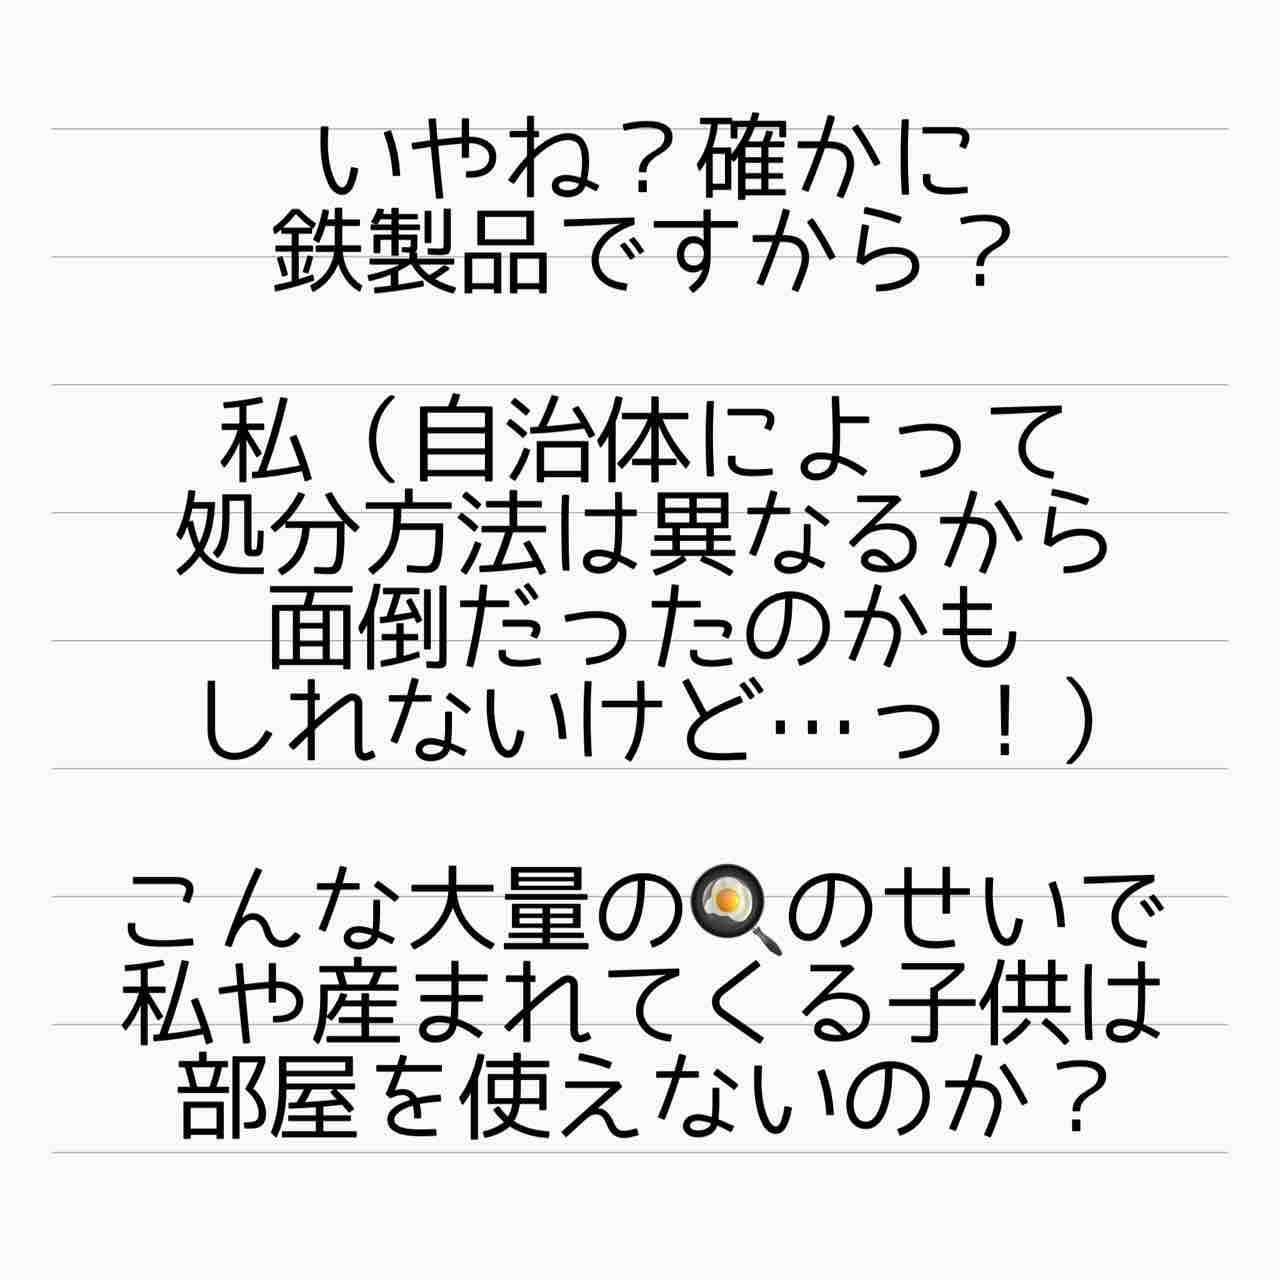 いやね？確かに
鉄製品ですから？
私（自治体によって
処分方法は異なるから
面倒だったのかも
しれないけど…っ！）
こんな大量の🍳のせいで
私や産まれてくる子供は
部屋を使えないのか？